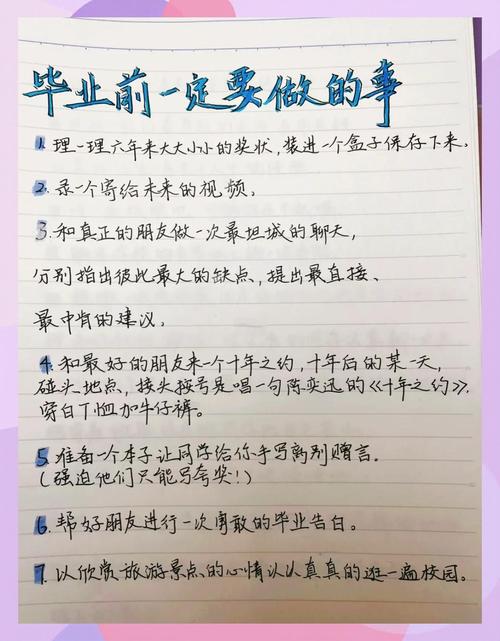 毕业前一定要做的事
1. 理一理六年来大大小小的奖状,装进一个盒子保存下来。
2. 录一个寄给未来的视频。
3. 和真正的朋友做一次最坦城的聊天,
分别指出彼此最大的缺点、提出最直接、
最中肯的建议。
4. 和最好的朋友来一个十年之约,十年后的某一天,
碰头地点,接头按号是唱一句陈奕迅的《十年之约》,
穿白T恤加牛仔裤。
5. 准备一个本子让同学给你手写离别赠言.
(强迫他们只能写夸奖!)
6. 帮好朋友进行一次勇敢的毕业告白。
7. 以欣赏旅游景点的心情认认真真的逛一遍校园。